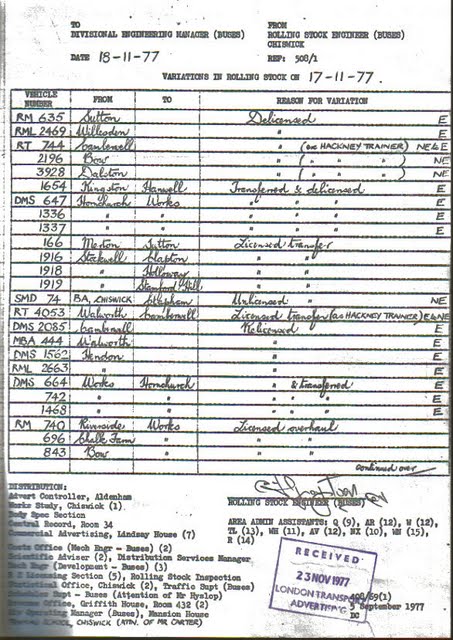 TO FROM
DIVISIONAL ENGINEERING MANAGER (BUSES) ROLLING STOCK ENGINEER (BUSES)
CHISWICK
DATE 18-11-77 REF: 508/1
VARIATIONS IN ROLLING STOCK ON 17-11-77.
VEHICLE NUMBER FROM TO REASON FOR VARIATION
RM 635 Sutton Delicensed E
RML 2469 Willesden " E
RT 744 Camberwell " (ex HACKNEY TRAINER) NE&E
2196 Bow " ( " " ) NE
3928 Dalston " ( " " ) NE
1654 Kingston Hanwell Transferred & delicensed E
DMS 647 Hornchurch Works " " " E
1336 " " " " " E
1337 " " " " " E
166 Merton Sutton Licensed transfer
1916 Stockwell Clapton " "
1918 " Holloway " "
1919 " Stamford Hill " "
SMD 74 BA, CHISWICK Clapham Unlicensed " NE
RT 4053 Walworth Camberwell Licensed transfer (as HACKNEY TRAINER) E&NE
DMS 2085 Camberwell Relicensed E
MBA 444 Walworth " E
DMS 1562 Hendon " E
RML 2663 " " E
DMS 664 Works Hornchurch " & transferred E
742 " " " " " E
1468 " " " " " E
RM 740 Riverside Works Licensed overhaul
696 Chalk Farm " " "
843 Bow " " "
continued over
DISTRIBUTION:
Advert Controller, Aldenham
Works Study, Chiswick (1)
Body Spec Section
Central Record, Room 34
Commercial Advertising, Lindsay House (7)
Costs Office (Mech Engr - Buses) (2)
Scientific Adviser (2), Distribution Services Manager
Mech Engr (Development - Buses) (3)
Licensing Section (5), Rolling Stock Inspection
Office, Chiswick (2), Traffic Supt (Buses)
Supt - Buses (Attention of Mr Hyslop)
Inventory Office, Griffith House, Room 432 (2)
Operating Manager (Buses), Mansion House
SCHOOL, CHISWICK (ATTN. OF MR CARTER)
ROLLING STOCK ENGINEER (BUSES)
AREA ADMIN ASSISTANTS: Q (9), AR (12), W (12),
TL (13), WH (11), AV (12), NX (10), WN (15),
R (14)
RECEIVED
23 NOV 1977
LONDON TRANSPORT
ADVERTISING
408/59(1)
5 September 1977
DC